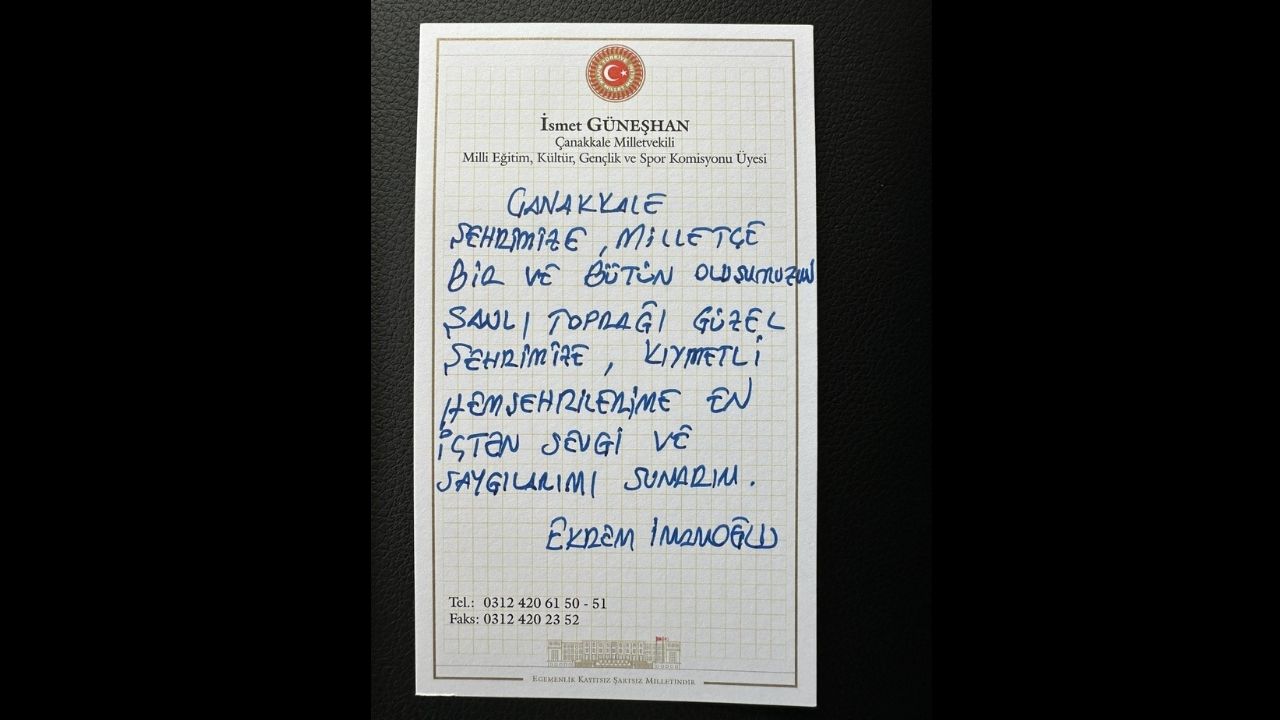 İsmet GÜNEŞHAN
Çanakkale Milletvekili
Milli Eğitim, Kültür, Gençlik ve Spor Komisyonu Üyesi
ÇANAKKALE
ŞEHRİMİZE, MİLLETÇE
BİR VE BÜTÜN OLUŞUMUZUN
ŞANLI TOPRAĞI GÜZEL
ŞEHRİMİZE, KIYMETLİ
HEMŞEHRİLERİME EN
İÇTEN SEVGİ VE
SAYGILARIMI SUNARIM.
EKREM İMAMOĞLU
Tel.: 0312 420 61 50 - 51
Faks: 0312 420 23 52
EGEMENLİK KAYITSIZ ŞARTSIZ MİLLETİNDİR